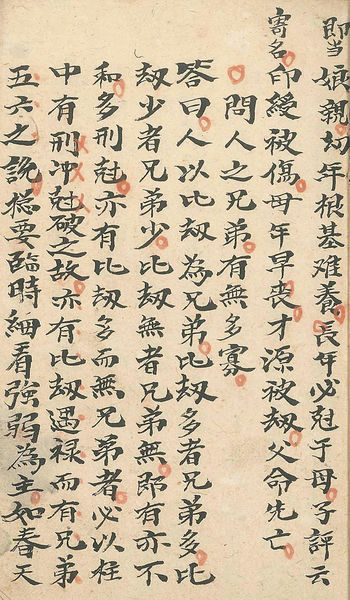 即当娘親幼年根基难養長年必尅于母子評云
寄名印綬被傷母年早喪才源被刼父命先亡
問人之兄弟有無多寡
答曰人以比刼為兄弟比刼多者兄弟多比
刼少者兄弟少比刼無者兄弟無即有亦不
和多刑尅亦有比刼多而無兄弟者必以柱
中有刑冲尅破之故亦有比刼遇禄而有兄弟
五六之說揔要臨時細看強弱為主如春天